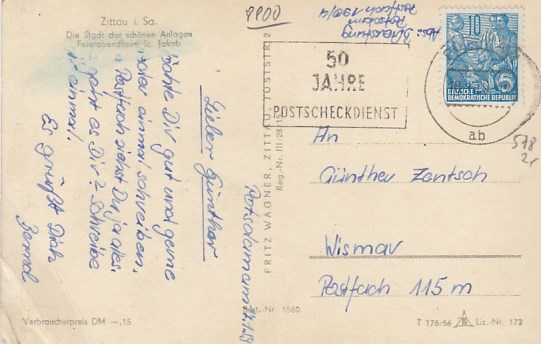 Zittau i. Sa.
Die Stadt der schönen Anlagen
Feierabendheim St. Jakob
8800
Postfach
Potsdam
50
JAHRE
POSTSCHECKDIENST
10
DEUTSCHE
DEMOKRATISCHE REPUBLIK
ab
578
Lieber Günther
möchte Dir gut und gerne
wieder einmal schreiben.
Postfach dienst Du ja alles.
geht es Dir? Schreibe
einmal.
Es grüßt Dich
Bernd
FRITZ WAGNER, ZITTAU,
Reg.-Nr. III/28/15
An
Günther Zantsch
Wismar
Postfach 115 m
Verbraucherpreis DM —,15
Best.-Nr. 1560
T 176/56 Liz.-Nr. 172